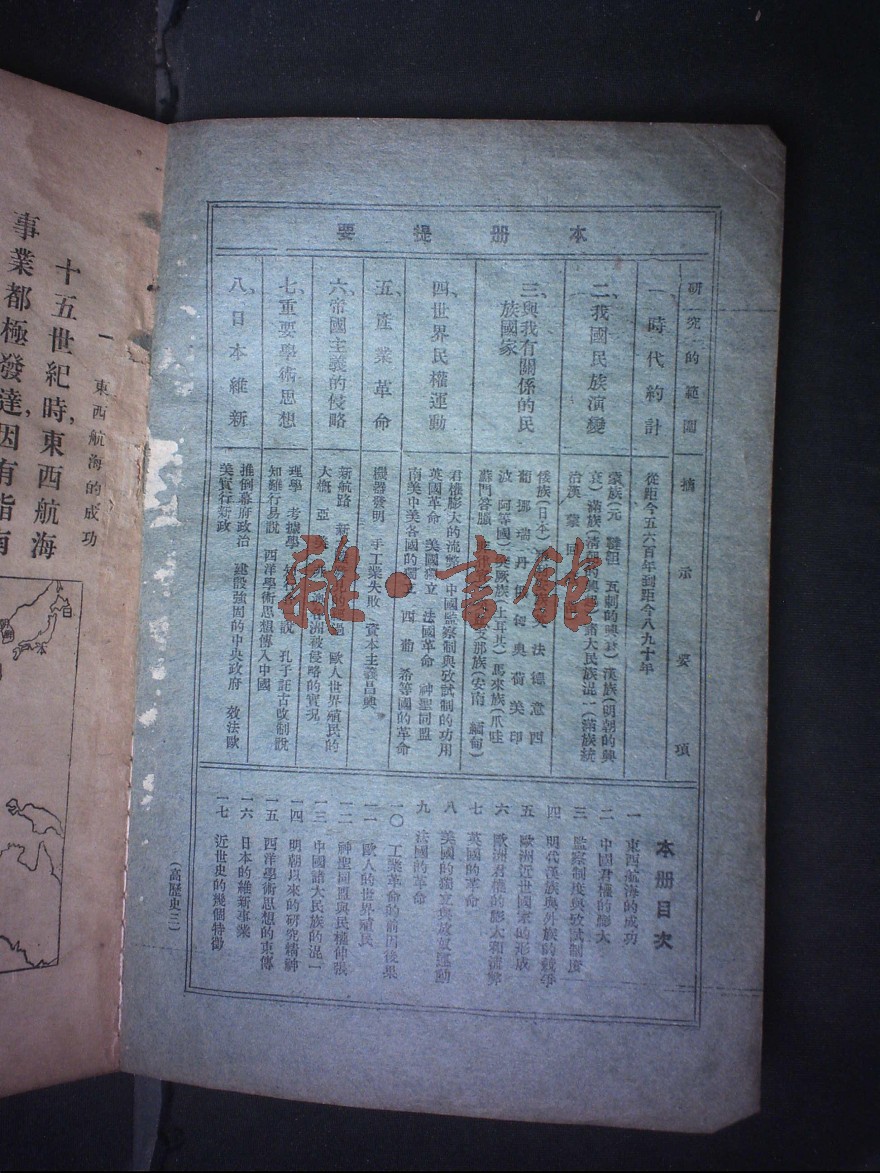 本册提要
研究的範圍
摘示要項
一、時代約計
從距今五六百年到距今八九十年
二、我國民族演變
蒙族(元 韃靼 瓦剌的興衰)漢族(明朝的興
衰)滿族(清朝的興 諸大民族混一(滿族統
治漢 蒙 回
三、與我有關係的民
族國家
倭族(日本) 英 法 德 意 西
葡 挪 瑞 丹 俄 奧 荷 美 印
波 阿等國)突厥族(土耳其)馬來族(爪哇
蘇門答臘 支那族(安南 緬甸)
四、世界民權運動
君權膨大的流弊 中國監察制與攷試制的功用
英國革命 美國獨立 法國革命 神聖同盟
南美中美各國的獨立 西 葡 希等國的革命
五、產業革命
機器發明 手工業失敗 資本主義昌興
六、帝國主義的侵略
新航路 新 歐人世界殖民的
大概 亞 洲被侵略的實況
七、重要學術思想
理學 考據學 說 孔子託古改制說
知難行易說 西洋學術思想傳入中國
八、日本維新
推倒幕府政治 建設強固的中央政府 效法歐
美實行新政
本册目次
一 東西航海的成功
二 中國君權的膨大
三 監察制度與攷試制度
四 明代漢族與外族的競爭
五 歐洲近世國家的形成
六 歐洲君權的膨大和流弊
七 英國的革命
八 美國的獨立與放奴運動
九 法國的革命
一〇 工業革命的前因後果
一一 歐人的世界殖民
一二 神聖同盟與民權伸張
一三 中國諸大民族的混一
一四 明朝以來的研究精神
一五 西洋學術思想的東傳
一六 日本的維新事業
一七 近世史的幾個特徵
(高歷史三)
雜·書館
一 東西航海的成功
十五世紀時,東西航海
事業都極發達,因有指南
日本